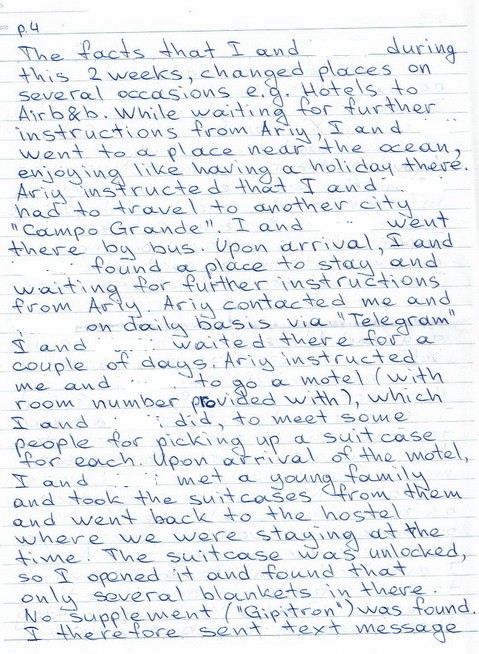 p.4
The facts that I and during
this 2 weeks, changed places on
several occasions e.g. Hotels to
Airb&b. While waiting for further
instructions from Ariy, I and
went to a place near the ocean,
enjoying like having a holiday there.
Ariy instructed that I and
had to travel to another city
"Campo Grande". I and went
there by bus. Upon arrival, I and
found a place to stay and
waiting for further instructions
from Ariy. Ariy contacted me and
on daily basis via "Telegram"
I and waited there for a
couple of days. Ariy instructed
me and to go a motel (with
room number provided with), which
I and did, to meet some
people for picking up a suitcase
for each. Upon arrival of the motel,
I and met a young family
and took the suitcases from them
and went back to the hostel
where we were staying at the
time. The suitcase was unlocked,
so I opened it and found that
only several blankets in there.
No supplement ("Gipitron") was found.
I therefore sent text message